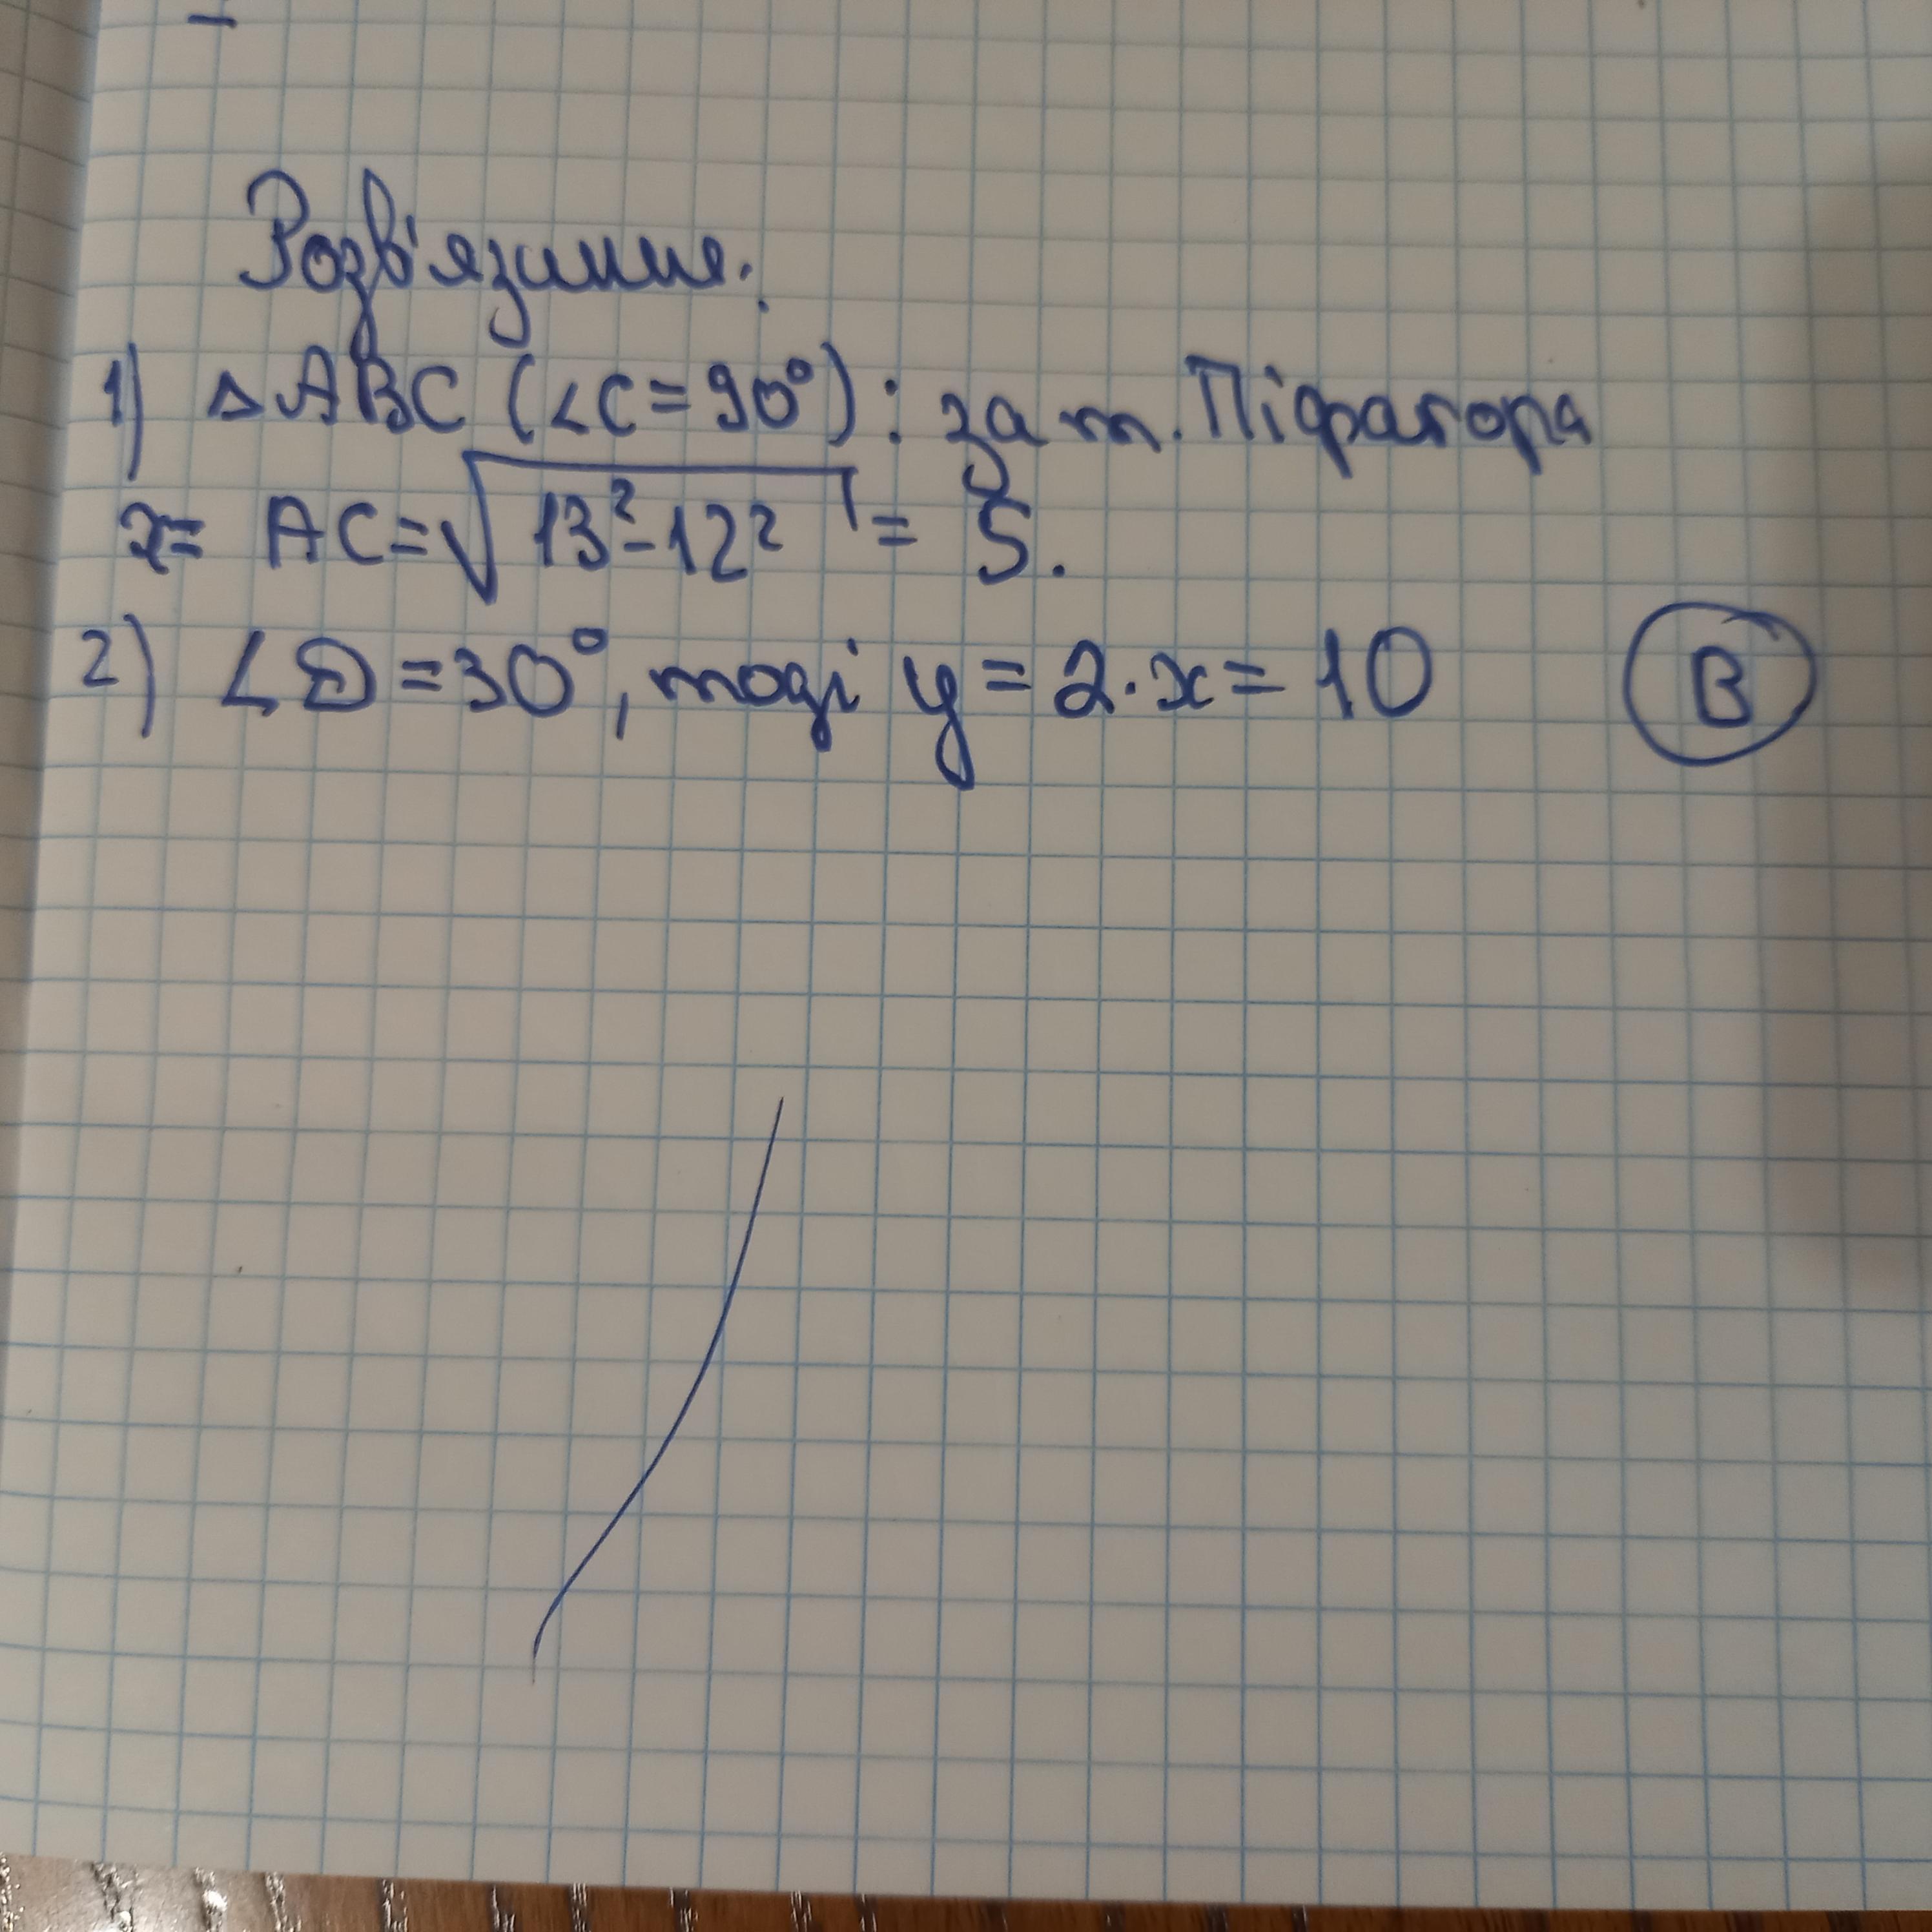 Розв'язання.
1) △ABC (∠C=90°): за т. Піфагора
x= AC=√13²-12² = 5.
2) ∠D=30°, тоді y=2·x=10 B